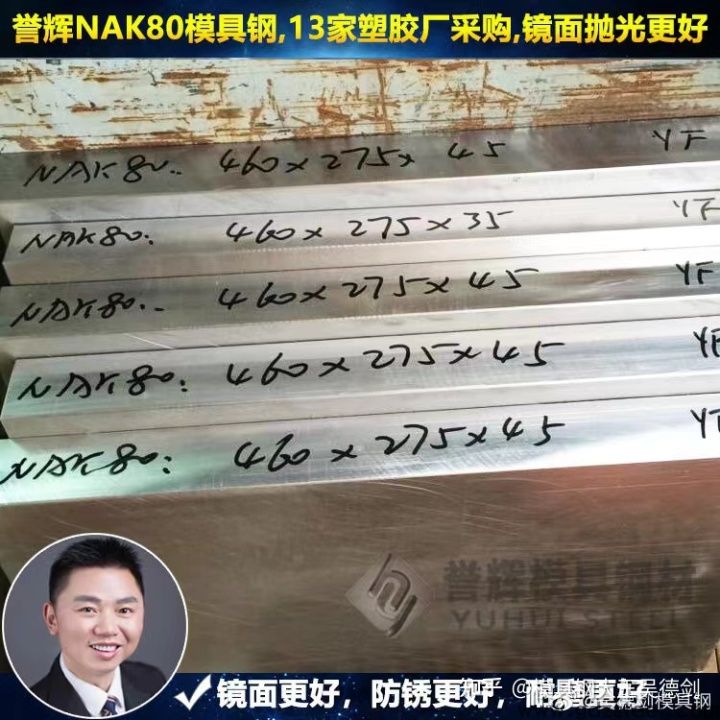 誉辉NAK80模具钢,13家塑胶厂采购,镜面抛光更好
NAK80.. 460x275x 45 YF
NAK80: 460x 275x35 YF
NAK80.. 460x275x45 YF
NAK80: 460x275x45 YF
NAK80: 460x275x45 YF
hy
誉辉模具钢材
YUHUI STEEL
知乎
吴德剑
模具钢
✓镜面更好，防锈更好，耐磨更好